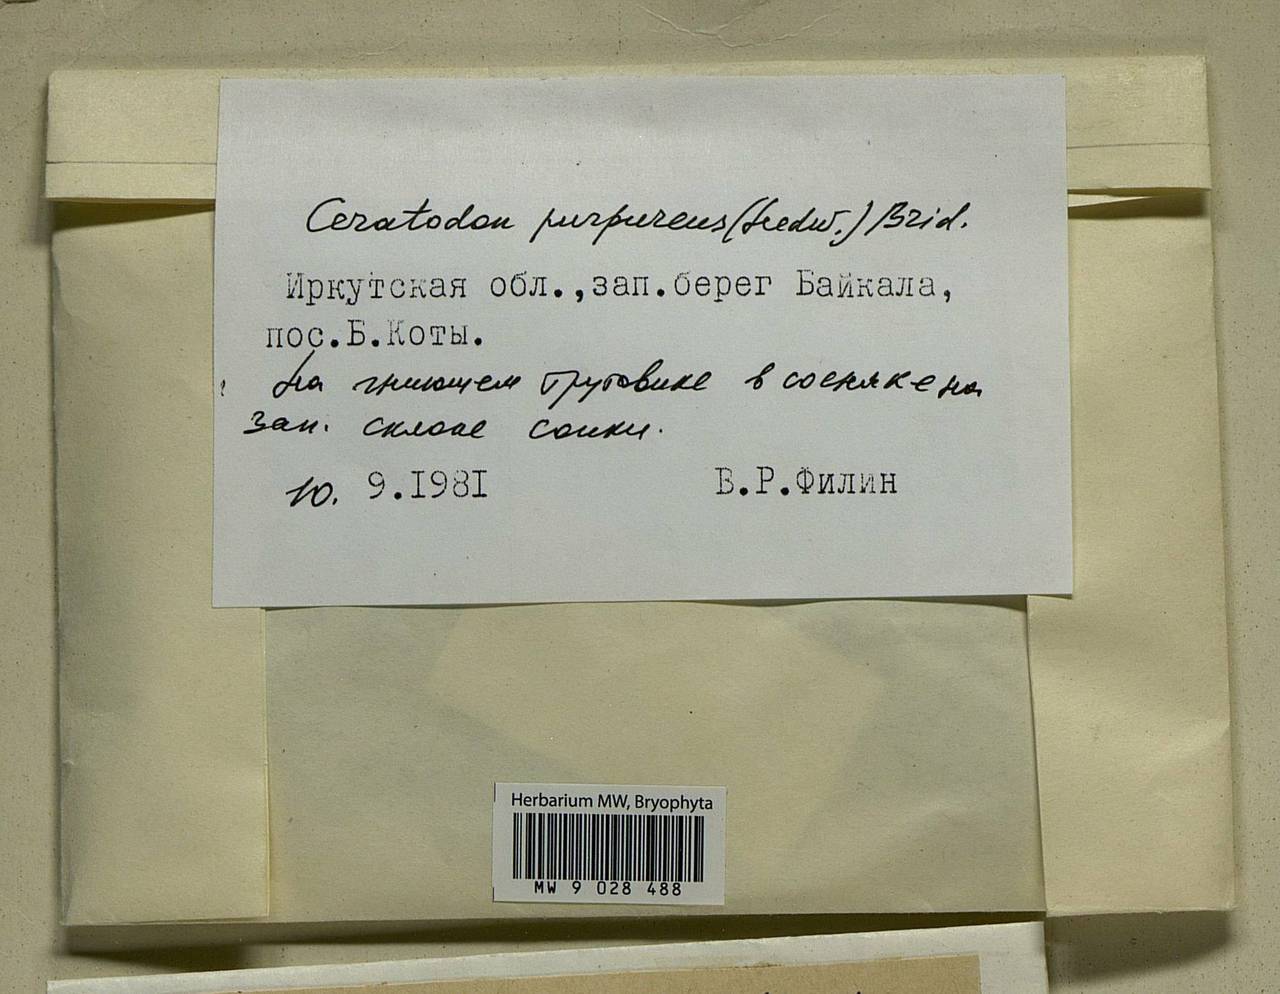 Ceratodon purpureus (Hedw.) Brid.
Иркутская обл.,зап.берег Байкала,
пос.Б.Коты.
На гниющем трутовике в сосняке на
зап. склоне сопки.
10. 9.I98I В.Р.Филин
Herbarium MW, Bryophyta
MW 9 028 488